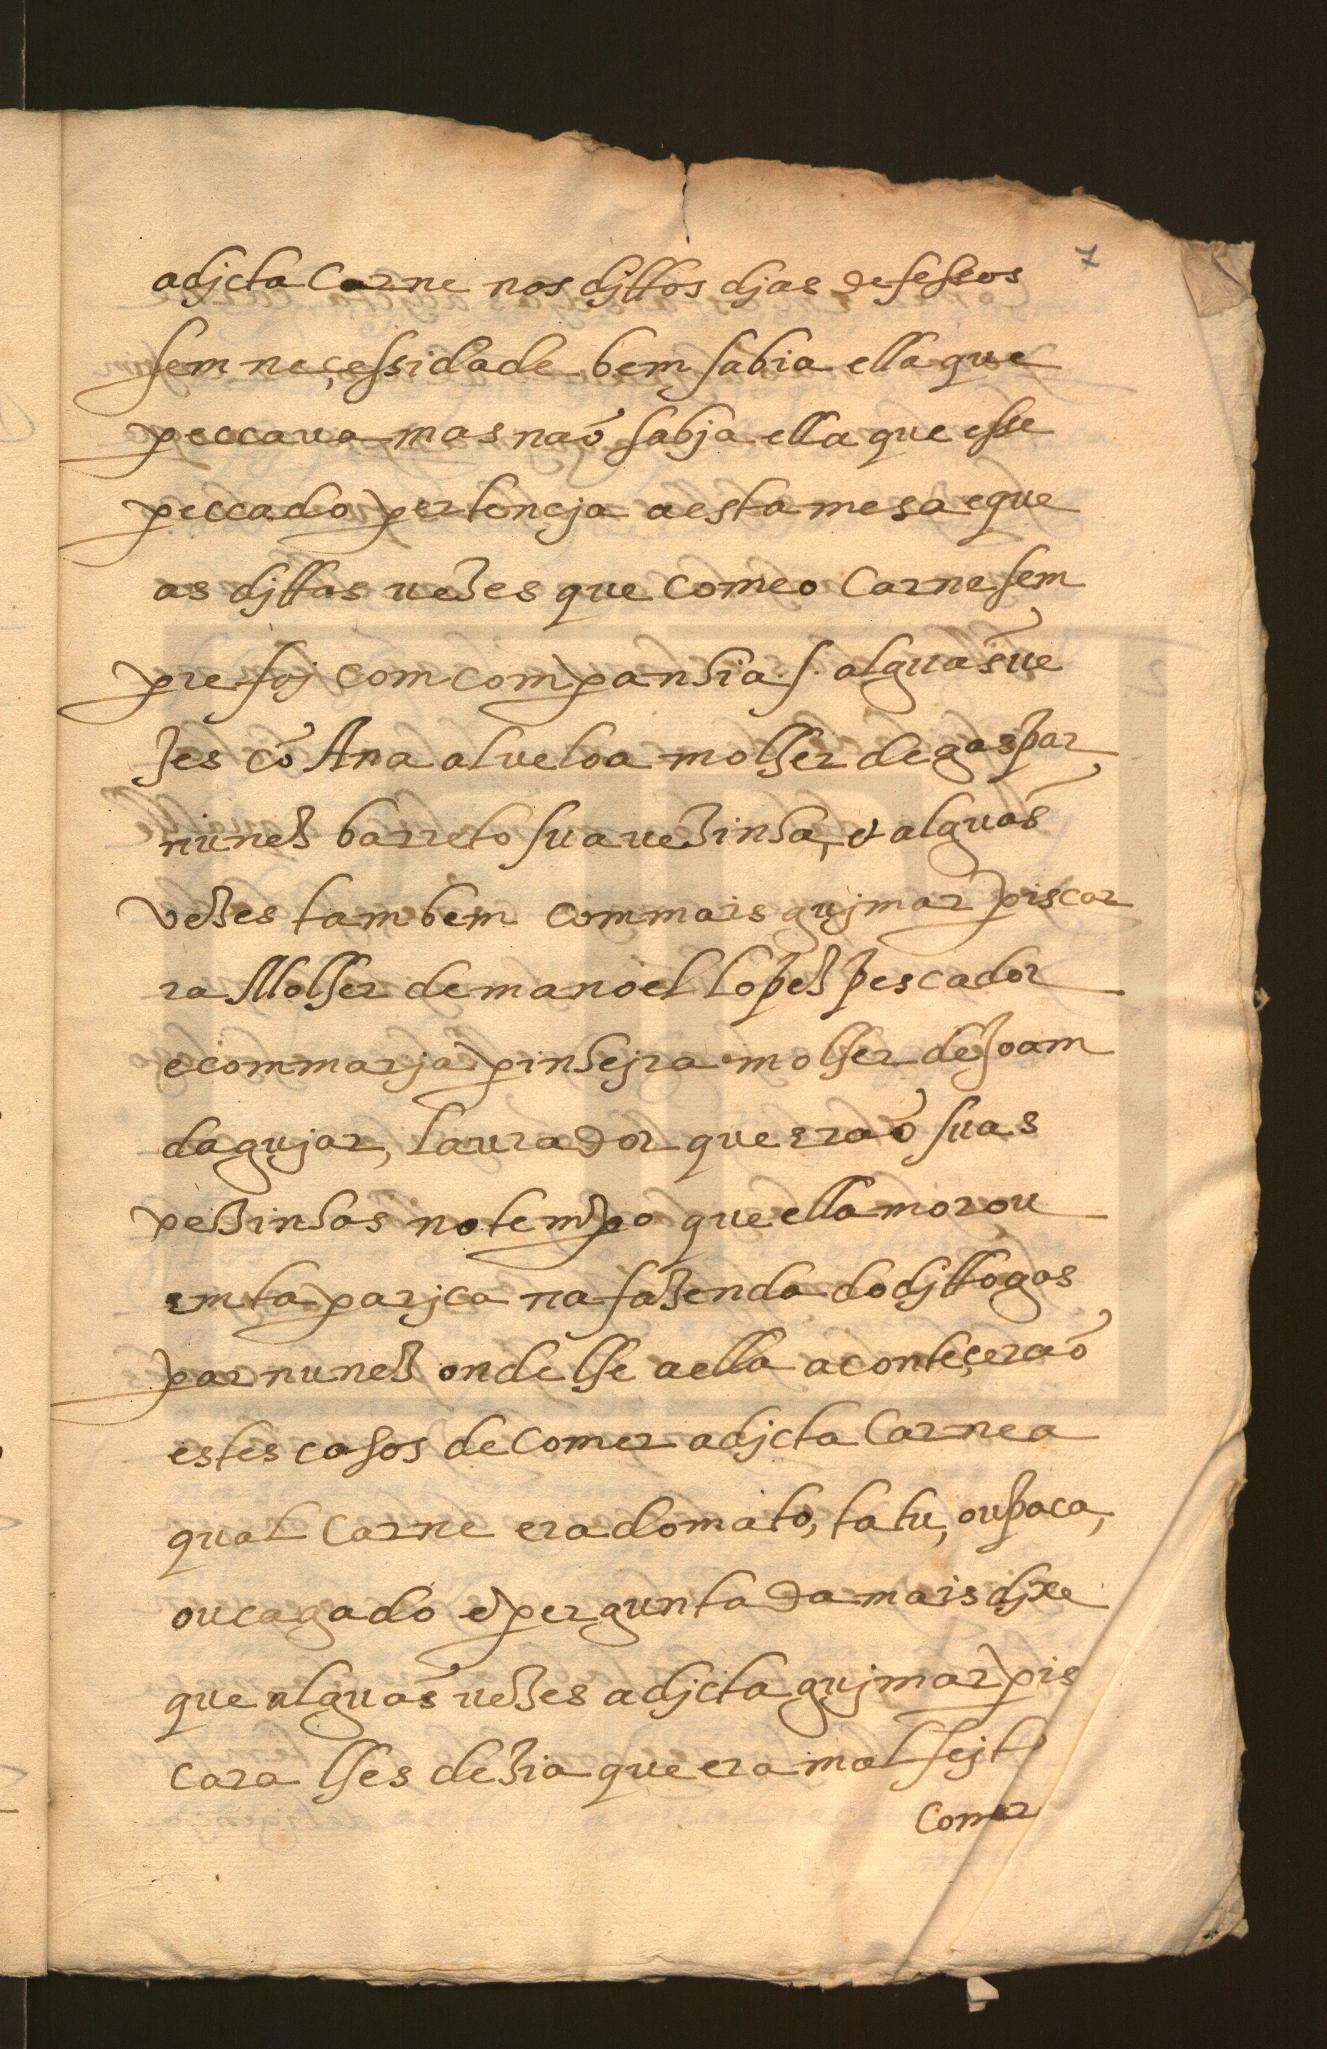 7
adjcta Carne nos djttos djas defesos
sem neçessidade bem sabia ella que
peccaua mas naõ sabja ella que esse
peccado pertencja a esta mesa e que
as djttas uezes que comeo Carne sem
pre foj com companhia .s. alguãs ue
zes cõ Ana alueloa molher de gaspar
nunez barreto sua uezinha, e alguãs
vezes tambem com mais gujmar piscar
ra Molher de manoel lopez pescador
e com marja pinhejra molher de Joam
dagujar, laurador que eraõ suas
vezinhas no tempo que ella morou
em taparjca na fazenda do djtto gas
par nunez onde lhe a ella aconteçeraõ
estes casos de Comer a djcta Carne a
qual Carne era do mato, tatu, ou paca,
ou cagado e perguntada mais djxe
que alguãs uezes a djcta gujmar pis
cara lhes dezia que era mal fejto
Comer